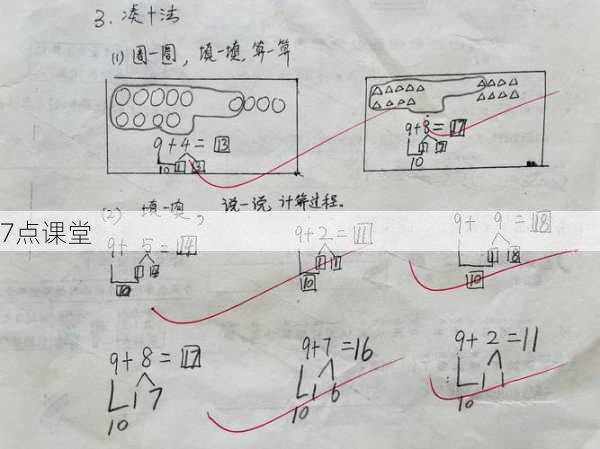 3. 凑十法
(1) 圈一圈，填一填，算一算
9+4=13
10 1 3
9+8=17
10 1 7
(2) 填一填，说一说 计算过程。
7点课堂
9+5=14 9+2=11 9+9=18
10 10 1 1 10 1 8
9+8=17 9+7=16 9+2=11
10 1 7 10 1 6 10 1 1